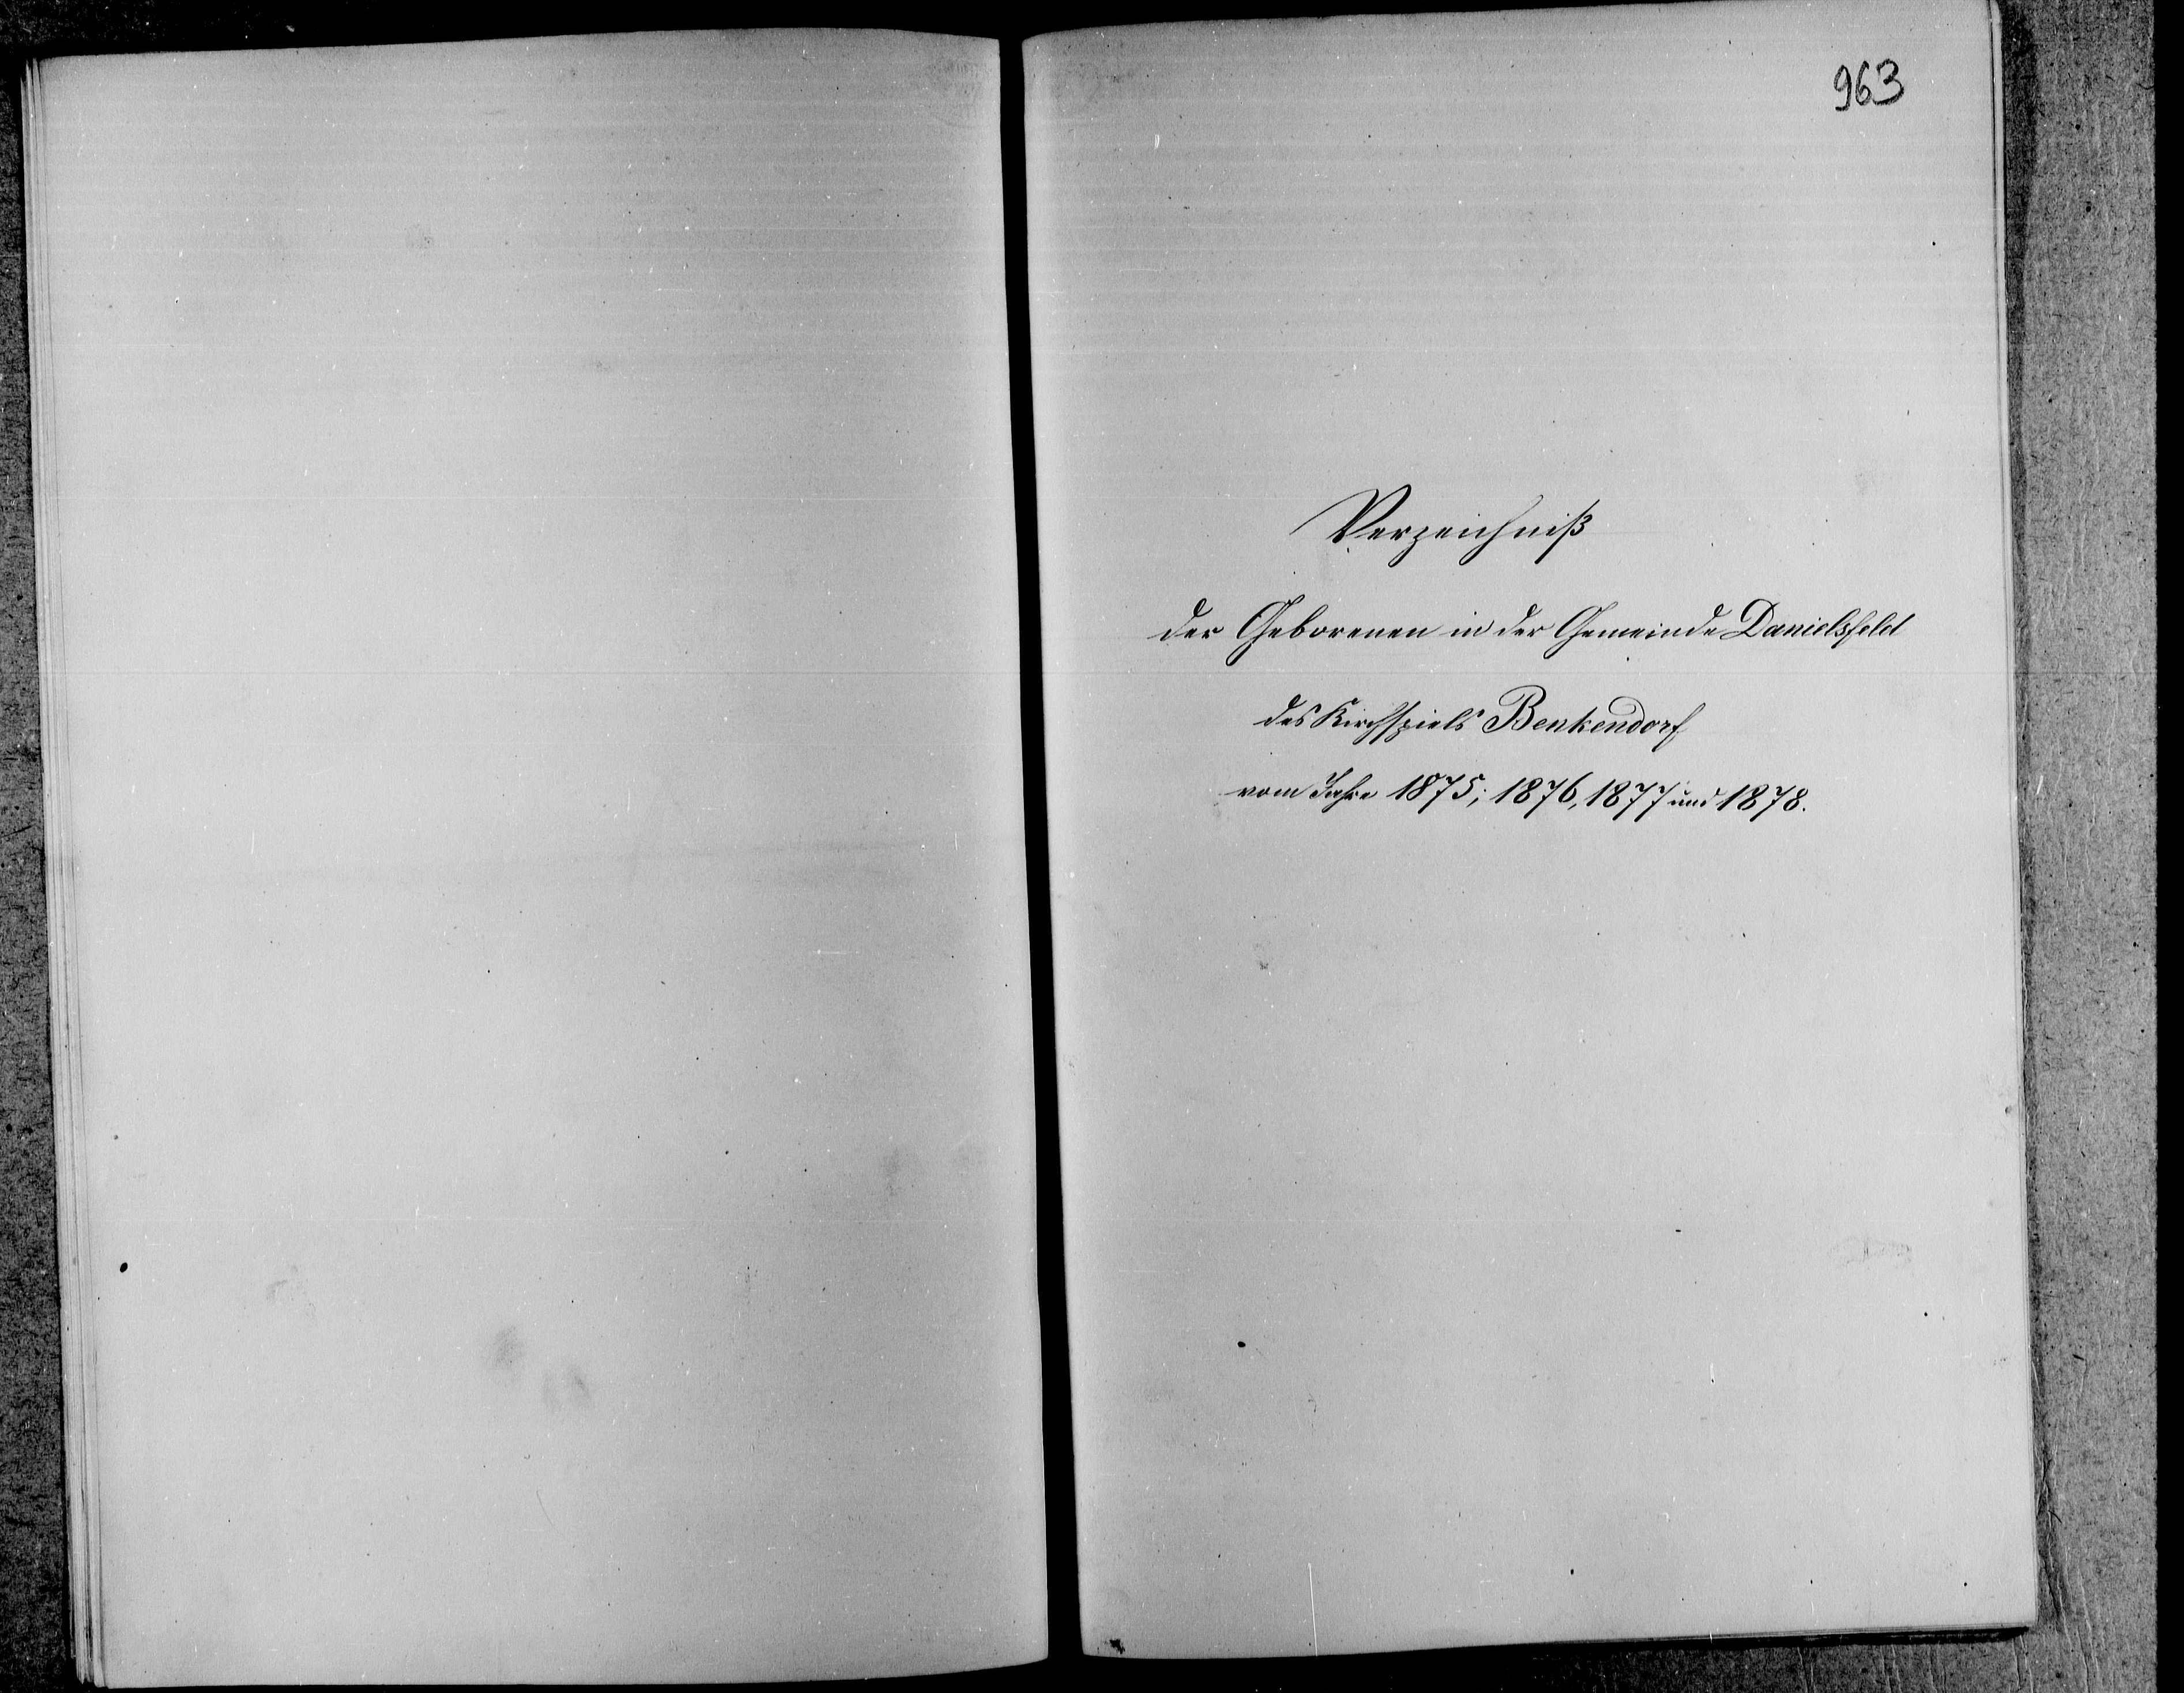 963
Verzeichniß
der Geborenen in der Gemeinde Danielsfeld
des Kirchspiels Benkendorf
vom Jahre 1875; 1876, 1877 und 1878.